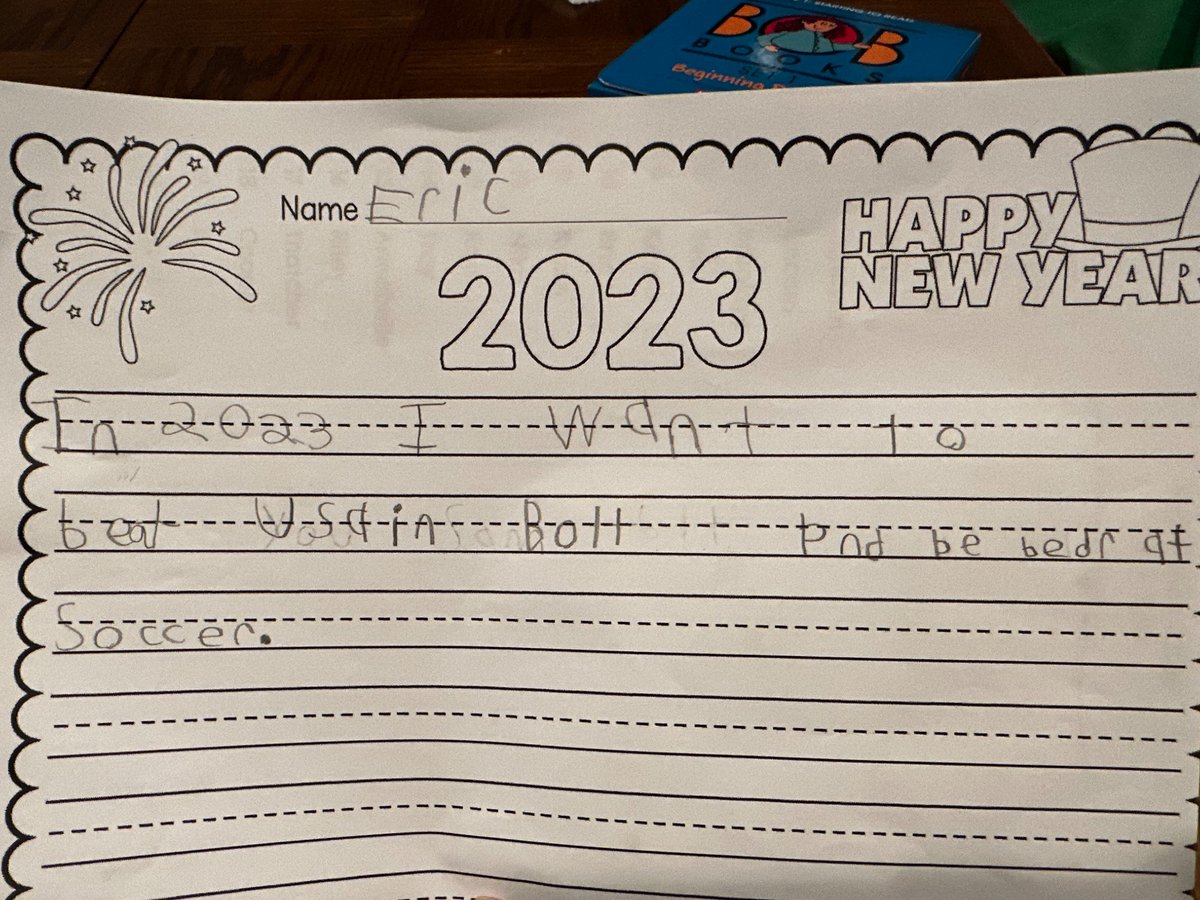 STARTING TO READ
BOB
BOOKS
Beginning
Name Eric
HAPPY
NEW YEAR
2023
In 2023 I want to
beat Ustin Bolt And be bedr at
Soccer.